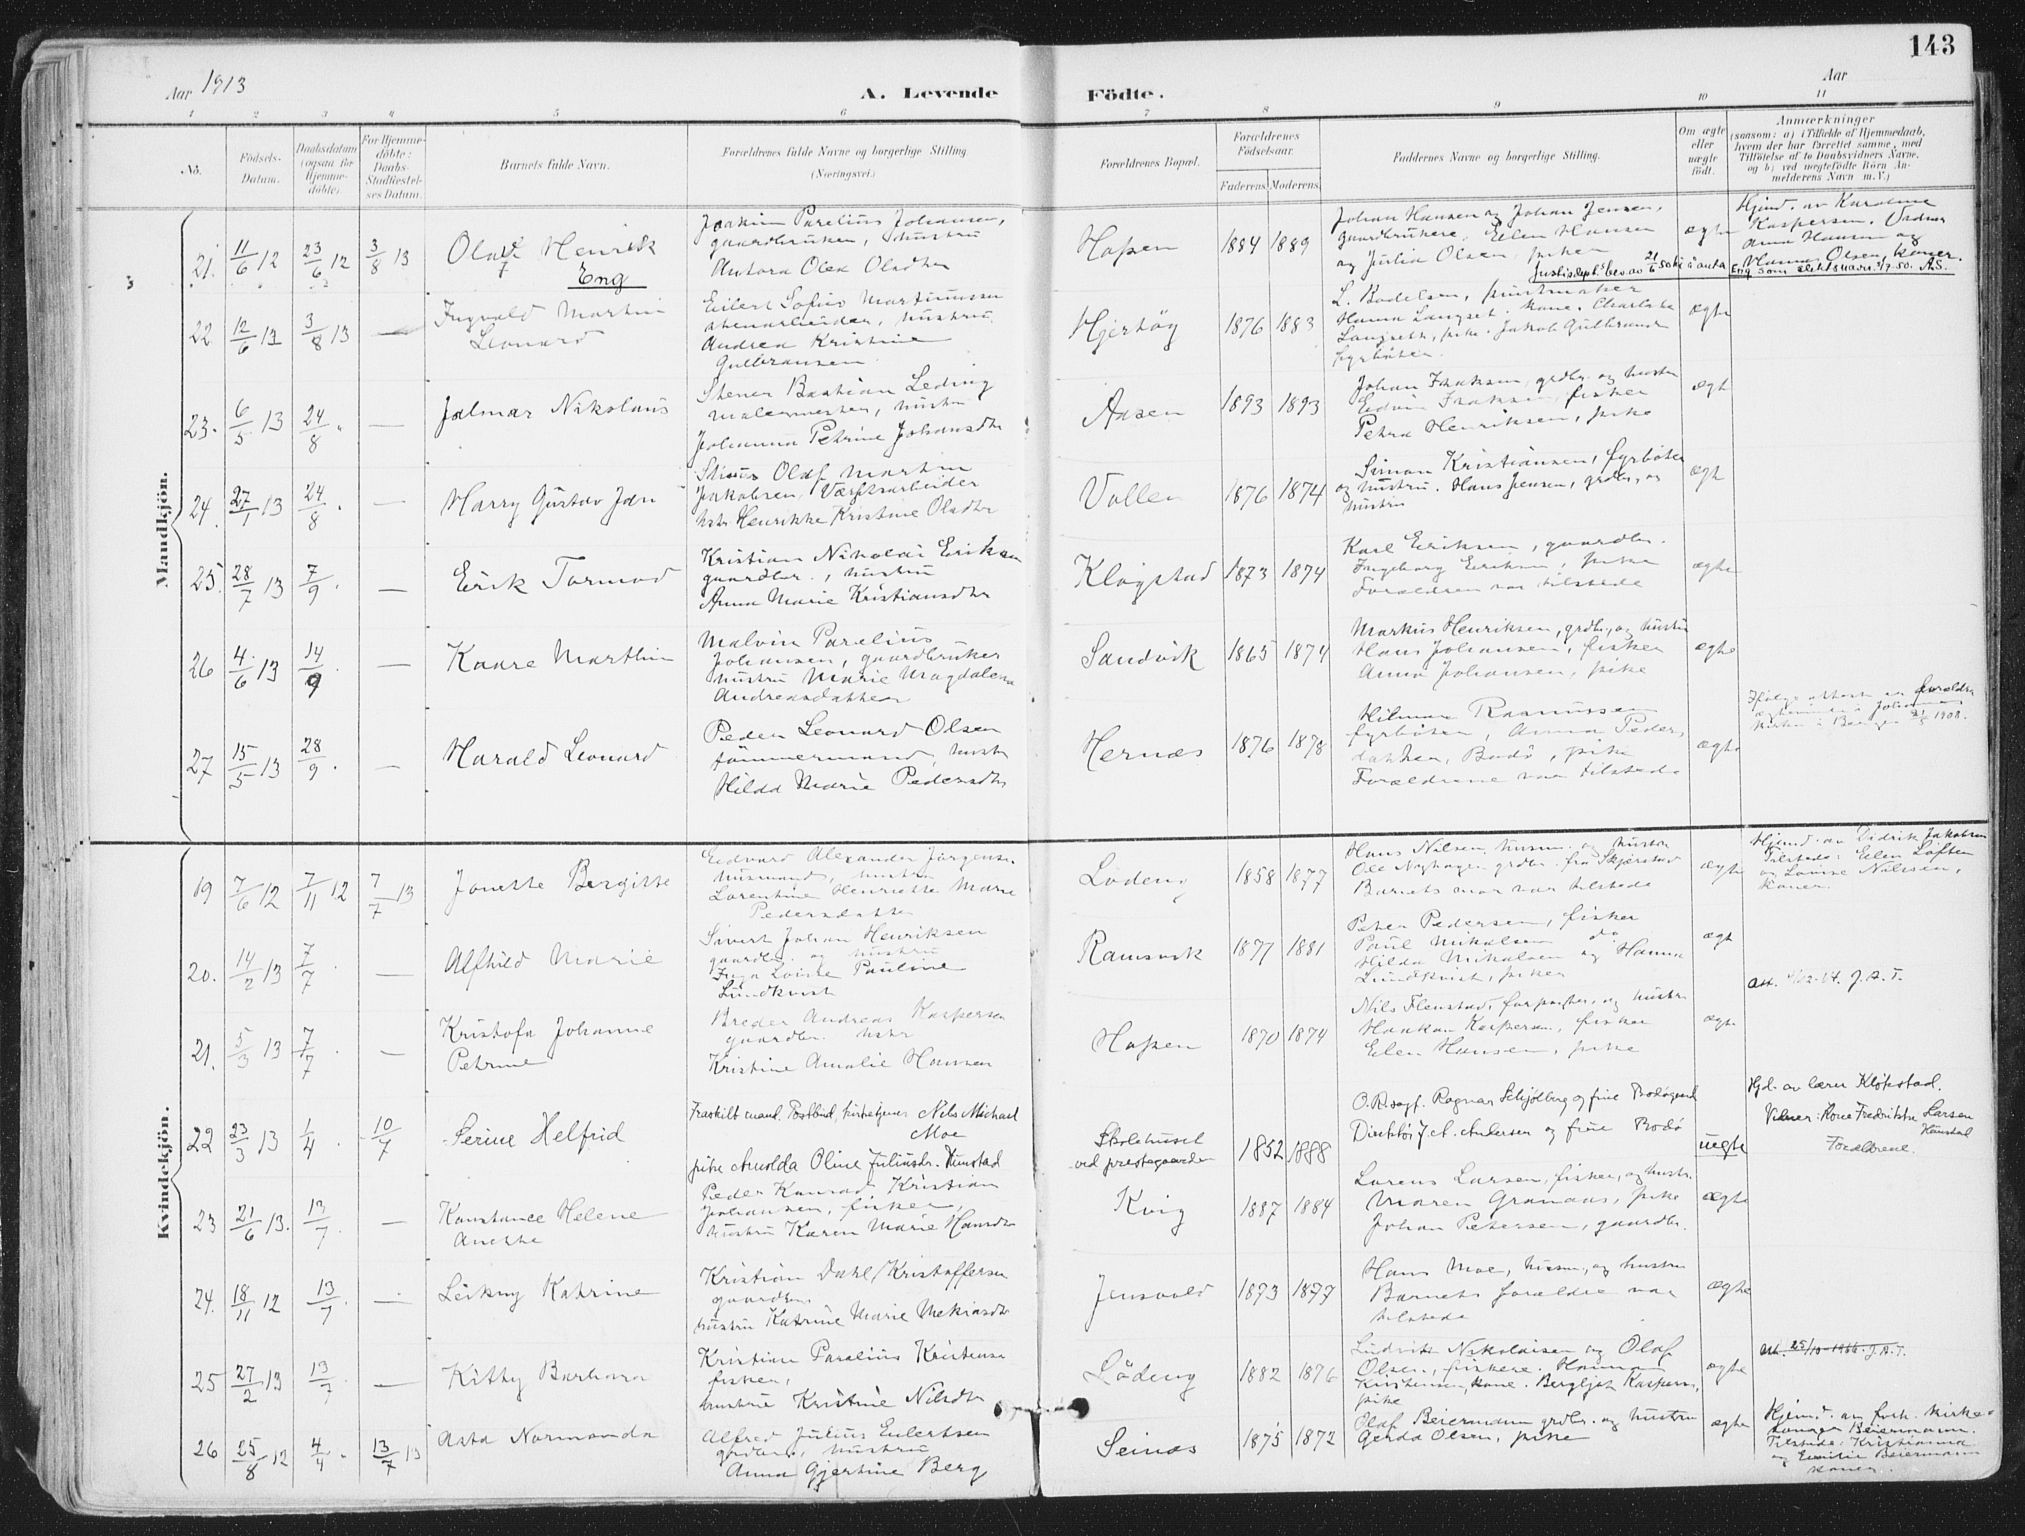 143
Aar 1913
A. Levende Födte.
Aar
1 2 3 4 5 6 7 8 9 10 11
No.
Födsels-Datum.
Daabsdatum (ogsaa for Hjemmedöbte).
For Hjemmedöbte: Daabs-Stadfæstelses Datum.
Barnets fulde Navn.
Forældrenes fulde Navne og borgerlige Stilling (Næringsvei.)
Forældrenes Bopæl.
Forældrenes Födselsaar.
Faderens. Moderens.
Faddernes Navne og borgerlige Stilling.
Om ægte eller uægte födt.
Anmærkninger
(saasom: a) i Tilfælde af Hjemmedaab, hvem der har forrettet samme, med Tilföielse af to Daabsvidners Navne, og b) ved uægtefödte Börn Anmelderens Navn m. V.)
Mandkjön.
21. 11/6 12 23/6 12 3/8 13
Olaf Henrik
Eng
Joakim Parelius Johansen,
gaardbruker, hustru
Antora Olea Olsdtr
Hopen 1884 1889
Johan Hansen og Johan Jensen,
gaardbrukere, Elen Hansen
og Julia Olsen, piker
ægte
Hjemd. av Karoline
Kaspersen. Vidner
Anna Hansen og
Hanna Olsen, koner.
Justisdept.s bev. av 21/6 50 til å anta
Eng som slektsnavn. 3/7.50. AS.
22 12/6 13 3/8 13 —
Ingvald Martin
Leonard
Eilert Sofus Martinussen
stenarbeider, hustru
Andrea Kristine
Gulbransen
Hjertøy 1876 1883
L. Bodelsen,
Hanna Langset, kone. Charlotte
Langseth, pike. Jakob Gulbrands
fyrbøter.
ægte
23. 6/5 13 24/8 " —
Jalmar Nikolaus
Stener Bastian Leding
malermester, hustru
Johanna Petrine Johansdtr
Aasen 1893 1893
Johan Isaksen, grdbr. og hustru
Edvin Isaksen, fisker
Petra Henriksen, pike
ægte
24. 27/1 13 24/8 " —
Harry Gustav Jan
Olaf Martin
Jakobsen, Værftsarbeider
hstr Henrikke Kristine Olsdtr
Vollen 1876 1874
Simon Kristiansen, fyrbøter
og hustru. Hans Jensen, grdbr., og
hustru
ægte
25. 28/7 13 7/9 . —
Erik Tormod
Kristian Nikolai Eriksen
gaardbr., hustru
Anna Marie Kristiansdtr
Kløgstad 1873 1874
Karl Eriksen, gaardbr.
Ingeborg Eriksen, pike
Forældren var tilstede
ægte
26 4/6 13 14/9 . —
Kaare Marthin
Malvin Parelius
Johansen, gaardbruker
hustru Marie Magdalena
Andreasdatter
Sandvik 1865 1874
Markus Henriksen, grdbr., og hustru
Hans Johansen, fisker
Anna Johansen, pike
ægte
27 15/5 13 28/9 . —
Harald Leonard
Peder Leonard Olsen
tømmermand, hustr
Hilda Marie Pedersdtr
Hernæs 1876 1878
Hilmar Rasmussen
fyrbøter, Anna Peders
datter, Bodø, pike
Forældrene var tilstede
ægte
Ifølge attest er forældr.
i Johannes
kirken i Bergen 1908.
Kvindekjön.
19 7/6 12 7/11 12 7/7 13
Jonette Bergitte
Edvard Alexander Jørgensen
husmand, hustru
Lorentine Henriette Marie
Pedersdatter
Løding 1858 1877
Hans Nilsen, husm. og hustru
Ole Nyhagen grdbr. fra Skjærstad
Barnets mor var tilstede
ægte
Hjemd. av Didrik Jakobsen
Tilstede: Elen Løften
og Louise Nilssen,
koner.
20. 14/2 13 7/7 . —
Alfhild Marie
Sivert Johan Henriksen
gaardbr. og hustru
Inga Lovise Pauline
Lundkvist
Ramsvik 1877 1881
Peter Pedersen, fisker
Paul Mikalsen do
Hilda Mikalsen og Hanna
Lundkvist, piker
ægt
att. 4/12-64. J.A.T.
21. 5/3 13 7/7 . —
Kristofa Johanne
Petrine
Breder Andreas Kaspersen
gaardbr. hstr
Kristine Amalie Hansen
Hopen 1870 1874
Nils Flenstad, forpagter, og hustr.
Haakon Kaspersen, fisker
Elen Hansen, pike
ægte
22 23/3 13 1/4 . 10/7
Serine Helfrid
Fraskilt mand. Postbud, kirketjener Nils Michael
Moe
pike Arnolda Oline Juliusdr. Tunstad
Skolehuset
ved prestegaarden 1852 1888
O.R.sagf. Ragnar Schjølberg og frue Bodøgaard
Direktør J. A. Andersen og frue Bodø
uegte
Hjd. av lærer Kløkstad.
Vidner: Kone Fredrikke Larsen
Tunstad
Forældrene.
23 21/6 13. 13/7 . —
Konstance Helene
Anette
Peder Konrad Kristian
Johansen, fisker,
hustru Karen Marie Hansdtr
Kvig 1887 1884
Lorens Larsen, fisker, og hustr.
Maren Granaas, pike
Johan Petersen, gaardbr.
ægte
24. 18/11 12 13/7 . —
Leikny Katrine
Kristian Dahl/Kristoffersen
gaardbr.
hustru Katrine Marie Mekiasdtr
Jensvold 1873 1877
Hans Moe, husm., og hustru
Barnets forældre var
tilstede
ægte
25 27/2 13 13/7 . —
Kitty Barbara
Kristian Paralius Kristensen
fisker,
hustru Kristine Nilsdtr
Løding 1882 1876
Ludvik Nikolaisen og Olaf
Olsen, fiskere. Hanna
Kristensen, kone. Bergljot Kaspersen,
pike
ægte
att. 25/10-1966. J.A.T.
26 25/8 12 4/4 " 13/7 13
Asta Normanda
Alfred Julius Eilertsen
hustru
Anna Gjertine Berg
Seines 1875 1872
Olaf Beiermann grdbr. og hustru
Gerda Olsen, pike
ægte
Hjemd. av forh. kirke-
sanger Beiermann.
Tilstede: Kristianna
og Emilie Beiermann
koner.